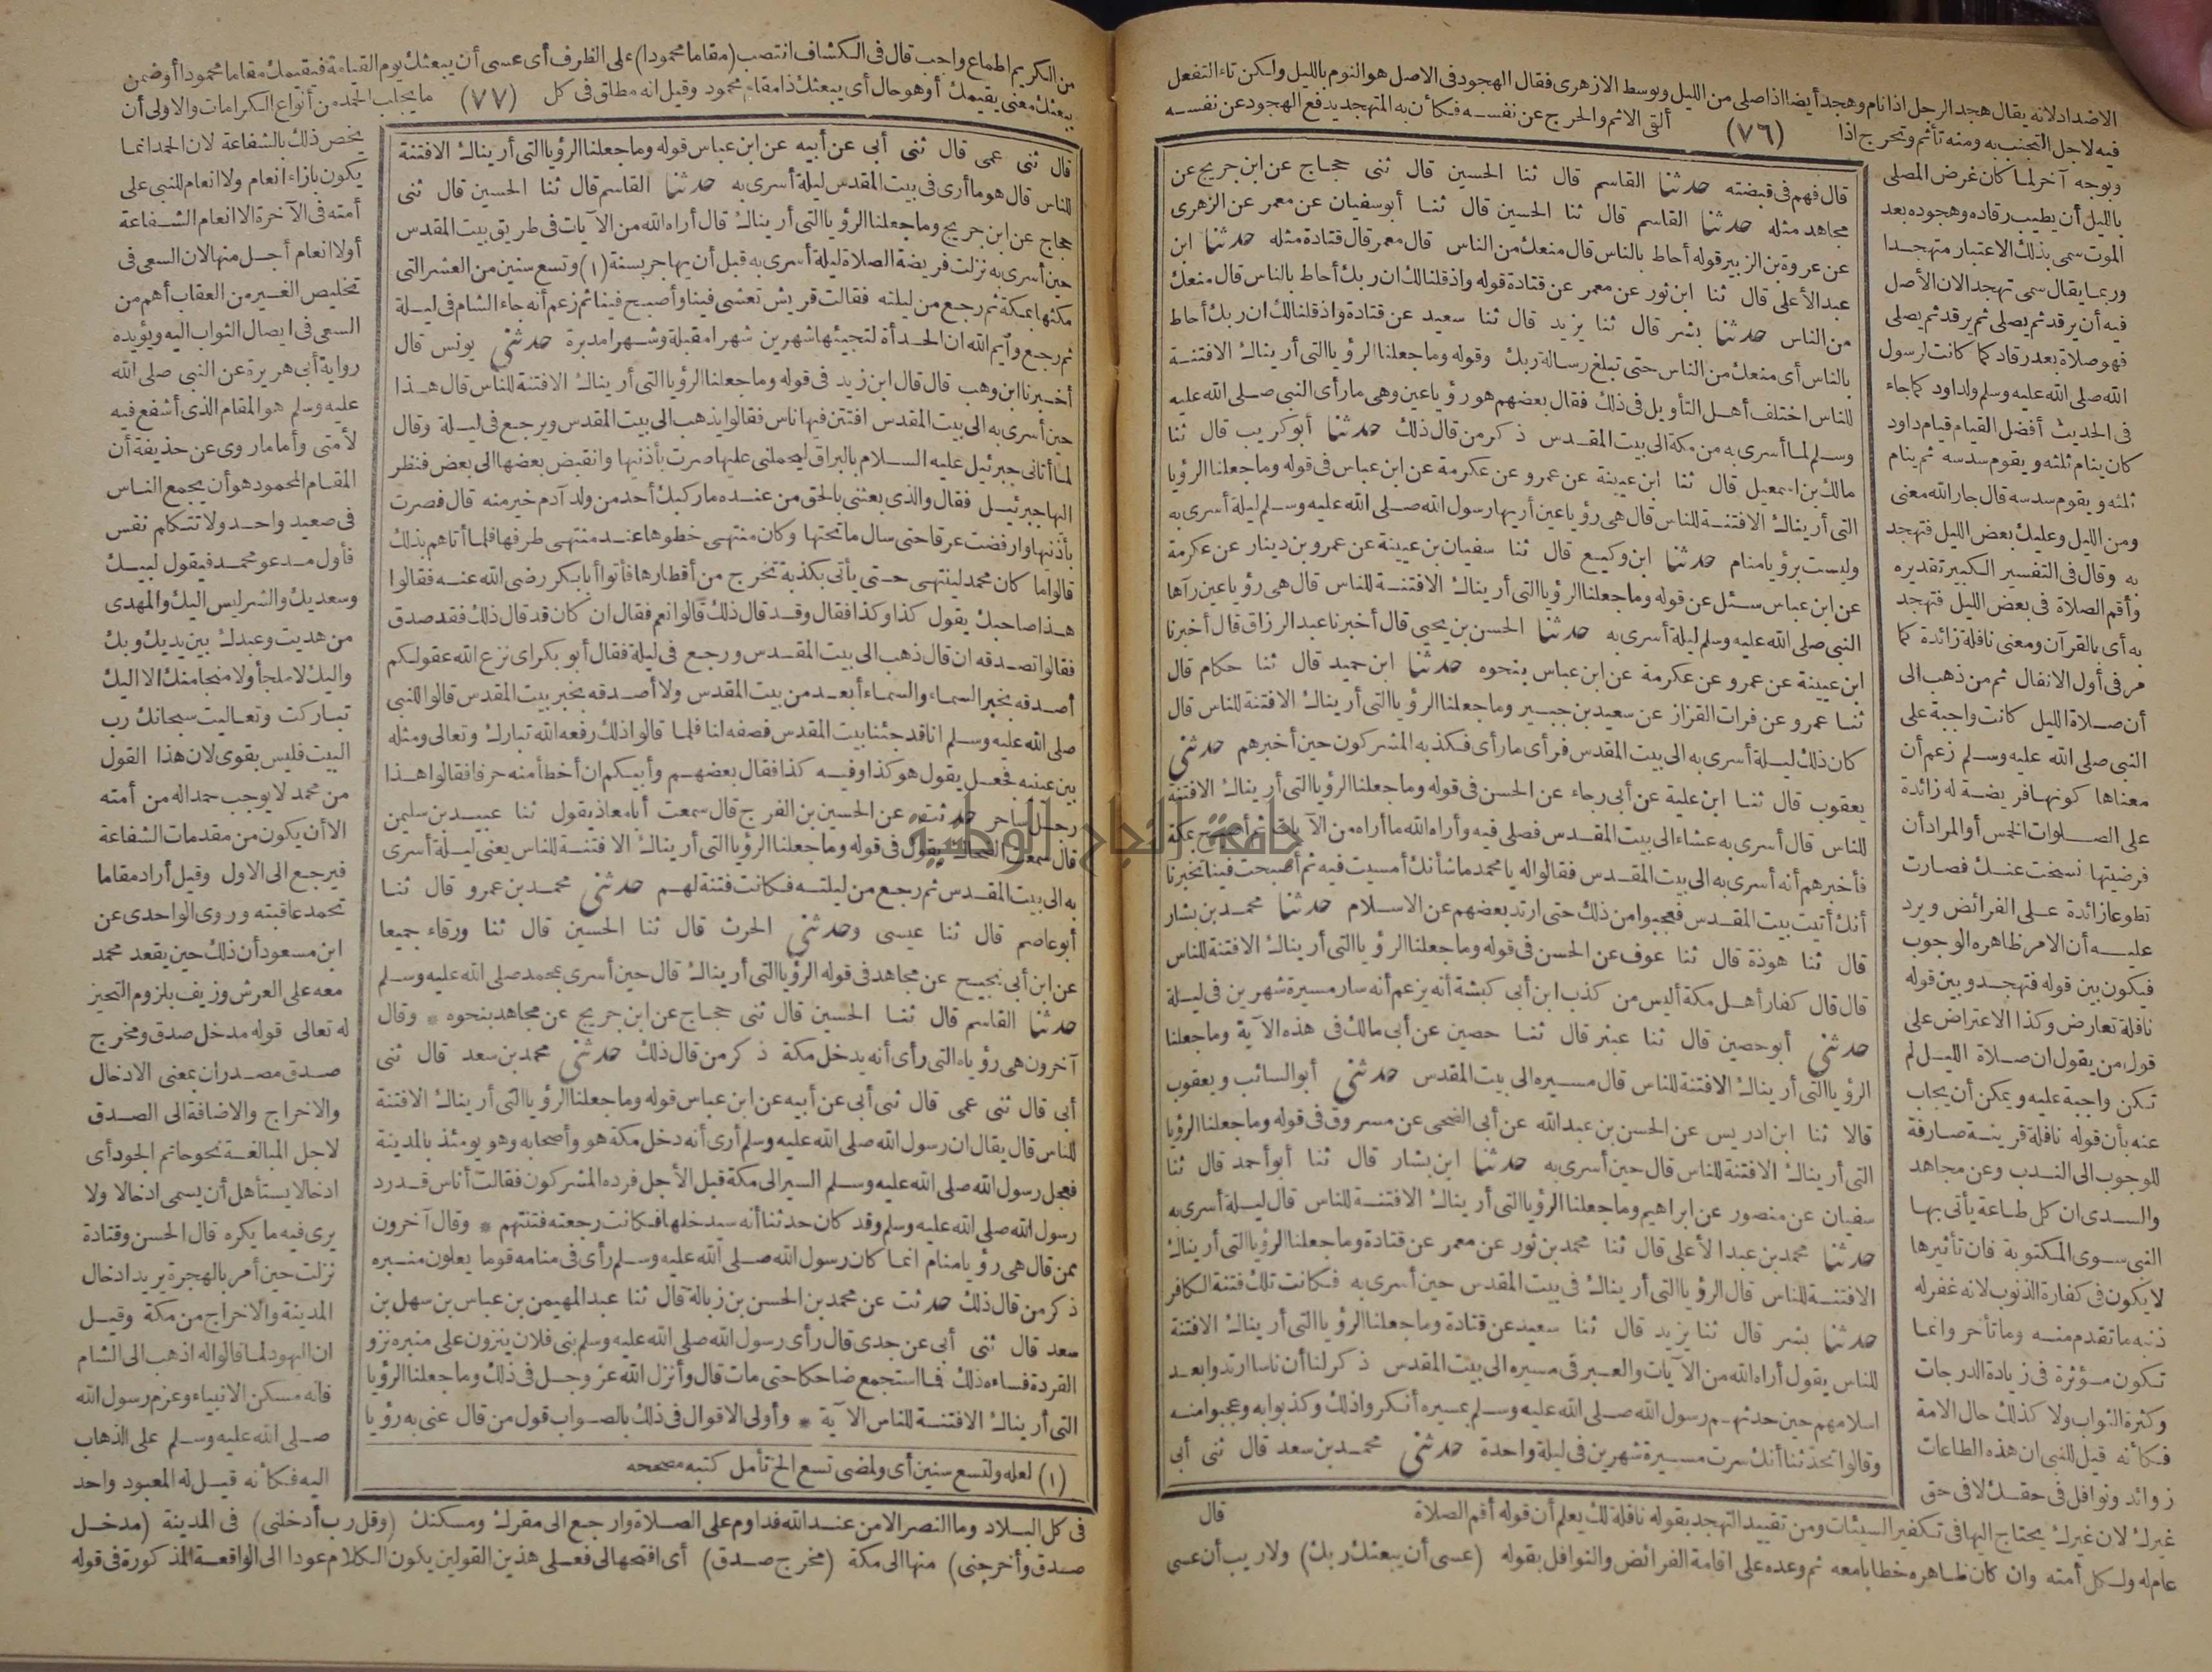 الاضداد لانه يقال هجد الرجل اذا نام وهجد أيضا اذا صلى من الليل وتوسط الازهرى فقال الهجود فى الاصل هو النوم بالليل ولكن تاء التفعل
فيه لاجل التجنب به ومنه تأثم وتحرج اذا (٧٦) ألقى الاثم والحرج عن نفسه فكأن به المتهجد يدفع الهجود عن نفسه
وبوجه آخر لما كان غرض المصلى
بالليل أن يطيب رقاده وهجوده بعد
الموت سمى بذلك الاعتبار متهجدا
وربما يقال سمى تهجد الان الأصل
فيه أن يرقد ثم يصلى ثم يرقد ثم يصلى
فهو صلاة بعد رقاد كما كانت لرسول
الله صلى الله عليه وسلم ولداود كما جاء
فى الحديث أفضل القيام قيام داود
كان ينام ثلثه ويقوم سدسه ثم ينام
ثلثه ويقوم سدسه قال جار الله معنى
ومن الليل وعليك بعض الليل فتهجد
به وقال فى التفسير الكبير تقديره
وأقم الصلاة فى بعض الليل فتهجد
به أى بالقرآن ومعنى نافلة زائدة كما
مر فى أول الانفال ثم من ذهب الى
أن صلاة الليل كانت واجبة على
النبى صلى الله عليه وسلم زعم أن
معناها كونها فريضة له زائدة
على الصلوات الخمس أو المراد أن
فرضيتها نسخت عنك فصارت
تطوعا زائدة على الفرائض ويرد
عليه أن الامر ظاهره الوجوب
فيكون بين قوله فتهجد وبين قوله
نافلة تعارض وكذا الاعتراض على
قول من يقول ان صلاة الليل لم
تكن واجبة عليه ويمكن أن يجاب
عنه بأن قوله نافلة قرينة صارفة
للوجوب الى الندب وعن مجاهد
والسدى ان كل طاعة يأتى بها
النبى سوى المكتوبة فان تأثيرها
لا يكون فى كفارة الذنوب لانه غفر له
ذنبه ما تقدم منه وما تأخر وانما
تكون مؤثرة فى زيادة الدرجات
وكثرة الثواب ولا كذلك حال الامة
فكأنه قيل للنبى ان هذه الطاعات
زوائد ونوافل فى حقك لا فى حق
قال فهم فى قبضته حدثنا القاسم قال ثنا الحسين قال ثنى حجاج عن ابن جريج عن
مجاهد مثله حدثنا القاسم قال ثنا الحسين قال ثنا أبو سفيان عن معمر عن الزهرى
عن عروة بن الزبير قوله أحاط بالناس قال منعك من الناس قال معمر قال قتادة مثله حدثنا ابن
عبد الأعلى قال ثنا ابن ثور عن معمر عن قتادة قوله واذ قلنا لك ان ربك أحاط بالناس قال منعك
من الناس حدثنا بشر قال ثنا يزيد قال ثنا سعيد عن قتادة واذ قلنا لك ان ربك أحاط
بالناس أى منعك من الناس حتى تبلغ رسالة ربك وقوله وما جعلنا الرؤيا التى أريناك الا فتنة
للناس اختلف أهل التأويل فى ذلك فقال بعضهم هو رؤيا عين وهى ما رأى النبى صلى الله عليه
وسلم لما أسرى به من مكة الى بيت المقدس ذكر من قال ذلك حدثنا أبو كريب قال ثنا
مالك بن اسمعيل قال ثنا ابن عيينة عن عمرو عن عكرمة عن ابن عباس فى قوله وما جعلنا الرؤيا
التى أريناك الا فتنة للناس قال هى رؤيا عين أريها رسول الله صلى الله عليه وسلم ليلة أسرى به
وليست برؤيا منام حدثنا ابن وكيع قال ثنا سفيان بن عيينة عن عمرو بن دينار عن عكرمة
عن ابن عباس سئل عن قوله وما جعلنا الرؤيا التى أريناك الا فتنة للناس قال هى رؤيا عين رآها
النبى صلى الله عليه وسلم ليلة أسرى به حدثنا الحسن بن يحيى قال أخبرنا عبد الرزاق قال أخبرنا
ابن عيينة عن عمرو عن عكرمة عن ابن عباس بنحوه حدثنا ابن حميد قال ثنا حكام قال
ثنا عمرو عن فرات القزاز عن سعيد بن جبير وما جعلنا الرؤيا التى أريناك الا فتنة للناس قال
كان ذلك ليلة أسرى به الى بيت المقدس فرأى ما رأى فكذبه المشركون حين أخبرهم حدثنى
يعقوب قال ثنا ابن علية عن أبى رجاء عن الحسن فى قوله وما جعلنا الرؤيا التى أريناك الا فتنة
للناس قال أسرى به عشاء الى بيت المقدس فصلى فيه وأراه الله ما أراه من الآيات ثم أصبح بمكة
فأخبرهم أنه أسرى به الى بيت المقدس فقالوا له يا محمد ما شأنك أمسيت فيه ثم أصبحت فينا تخبرنا
أنك أتيت بيت المقدس فعجبوا من ذلك حتى ارتد بعضهم عن الاسلام حدثنا محمد بن بشار
قال ثنا هوذة قال ثنا عوف عن الحسن فى قوله وما جعلنا الرؤيا التى أريناك الا فتنة للناس
قال قال كفار أهل مكة أليس من كذب ابن أبى كبشة أنه يزعم أنه سار مسيرة شهرين فى ليلة
حدثنى أبو حصين قال ثنا عبثر قال ثنا حصين عن أبى مالك فى هذه الآية وما جعلنا
الرؤيا التى أريناك الا فتنة للناس قال مسيره الى بيت المقدس حدثنى أبو السائب ويعقوب
قالا ثنا ابن ادريس عن الحسن بن عبد الله عن أبى الضحى عن مسروق فى قوله وما جعلنا الرؤيا
التى أريناك الا فتنة للناس قال حين أسرى به حدثنا ابن بشار قال ثنا أبو أحمد قال ثنا
سفيان عن منصور عن ابراهيم وما جعلنا الرؤيا التى أريناك الا فتنة للناس قال ليلة أسرى به
حدثنا محمد بن عبد الأعلى قال ثنا محمد بن ثور عن معمر عن قتادة وما جعلنا الرؤيا التى أريناك
الا فتنة للناس قال الرؤيا التى أريناك فى بيت المقدس حين أسرى به فكانت تلك فتنة الكافر
حدثنا بشر قال ثنا يزيد قال ثنا سعيد عن قتادة وما جعلنا الرؤيا التى أريناك الا فتنة
للناس يقول أراه الله من الآيات والعبر فى مسيره الى بيت المقدس ذكر لنا أن ناسا ارتدوا بعد
اسلامهم حين حدثهم رسول الله صلى الله عليه وسلم بمسيره أنكروا ذلك وكذبوا به وعجبوا منه
وقالوا تحدثنا أنك سرت مسيرة شهرين فى ليلة واحدة حدثنى محمد بن سعد قال ثنى أبى
قال
غيرك لان غيرك يحتاج اليها فى تكفير السيئات ومن تقييد التهجد بقوله نافلة لك يعلم أن قوله أقم الصلاة
عام له ولكل أمته وان كان ظاهره خطابا معه ثم وعده على اقامة الفرائض والنوافل بقوله (عسى أن يبعثك ربك) ولا ريب أن عسى
من الكريم اطماع واجب قال فى الكشاف انتصب (مقاما محمودا) على الظرف أى عسى أن يبعثك يوم القيامة فيقيمك مقاما محمودا أو ضمن
يبعثك معنى يقيمك أو هو حال أى يبعثك ذا مقام محمود وقيل انه مطلق فى كل (٧٧) ما يجلب الحمد من أنواع الكرامات والاولى أن
قال ثنى عمى قال ثنى أبى عن أبيه عن ابن عباس قوله وما جعلنا الرؤيا التى أريناك الا فتنة
للناس قال هو ما أرى فى بيت المقدس ليلة أسرى به حدثنا القاسم قال ثنا الحسين قال ثنى
حجاج عن ابن جريج وما جعلنا الرؤيا التى أريناك قال أراه الله من الآيات فى طريق بيت المقدس
حين أسرى به نزلت فريضة الصلاة ليلة أسرى به قبل أن يهاجر بسنة (١) وتسع سنين من العشر التى
مكثها بمكة ثم رجع من ليلته فقالت قريش تعشى فينا وأصبح فينا ثم زعم أنه جاء الشام فى ليلة
ثم رجع وأيم الله ان الحدأة لتجيئها شهرين شهرا مقبلة وشهرا مدبرة حدثنى يونس قال
أخبرنا ابن وهب قال قال ابن زيد فى قوله وما جعلنا الرؤيا التى أريناك الا فتنة للناس قال هذا
حين أسرى به الى بيت المقدس افتتن فيها ناس فقالوا يذهب الى بيت المقدس ويرجع فى ليلة وقال
لما أتانى جبرئيل عليه السلام بالبراق ليحملنى عليها صرت بأذنيها وانقبض بعضها الى بعض فنظر
اليها جبرئيل فقال والذى بعثنى بالحق من عنده ما ركبك أحد من ولد آدم خير منه قال فصرت
بأذنيها وارفضت عرقا حتى سال ما تحتها وكان منتهى خطوها عند منتهى طرفها فلما أتاهم بذلك
قالوا ما كان محمد لينتهى حتى يأتى بكذبة تخرج من أقطارها فأتوا أبا بكر رضى الله عنه فقالوا
هذا صاحبك يقول كذا وكذا فقال وقد قال ذلك قالوا نعم فقال ان كان قد قال ذلك فقد صدق
فقالوا تصدقه ان قال ذهب الى بيت المقدس ورجع فى ليلة فقال أبو بكر اى نزع الله عقولكم
أصدقه بخبر السماء والسماء أبعد من بيت المقدس ولا أصدقه بخبر بيت المقدس قالوا للنبى
صلى الله عليه وسلم انا قد جئنا بيت المقدس فصفه لنا فلما قالوا ذلك رفعه الله تبارك وتعالى ومثله
بين عينيه فجعل يقول هو كذا وفيه كذا فقال بعضهم وأبيكم ان أخطأ منه حرفا فقالوا هذا
رجل ساحر حدثت عن الحسين بن الفرج قال سمعت أبا معاذ يقول ثنا عبيد بن سليمن
قال سمعت الضحاك يقول فى قوله وما جعلنا الرؤيا التى أريناك الا فتنة للناس يعنى ليلة أسرى
به الى بيت المقدس ثم رجع من ليلته فكانت فتنة لهم حدثنى محمد بن عمرو قال ثنا
أبو عاصم قال ثنا عيسى وحدثنى الحرث قال ثنا الحسين قال ثنا ورقاء جميعا
عن ابن أبى نجيح عن مجاهد فى قوله الرؤيا التى أريناك قال حين أسرى بمحمد صلى الله عليه وسلم
حدثنا القاسم قال ثنا الحسين قال ثنى حجاج عن ابن جريج عن مجاهد بنحوه * وقال
آخرون هى رؤياه التى رأى أنه يدخل مكة ذكر من قال ذلك حدثنى محمد بن سعد قال ثنى
أبى قال ثنى عمى قال ثنى أبى عن أبيه عن ابن عباس قوله وما جعلنا الرؤيا التى أريناك الا فتنة
للناس قال يقال ان رسول الله صلى الله عليه وسلم أرى أنه دخل مكة هو وأصحابه وهو يومئذ بالمدينة
فعجل رسول الله صلى الله عليه وسلم السير الى مكة قبل الأجل فرده المشركون فقالت أناس قد رد
رسول الله صلى الله عليه وسلم وقد كان حدثنا أنه سيدخلها فكانت رجعته فتنتهم * وقال آخرون
ممن قال هى رؤيا منام انما كان رسول الله صلى الله عليه وسلم رأى فى منامه قوما يعلون منبره
ذكر من قال ذلك حدثت عن محمد بن الحسن بن زبالة قال ثنا عبد المهيمن بن عباس بن سهل بن
سعد قال ثنى أبى عن جدى قال رأى رسول الله صلى الله عليه وسلم بنى فلان ينزون على منبره نزو
القردة فساءه ذلك فما استجمع ضاحكا حتى مات قال وأنزل الله عز وجل فى ذلك وما جعلنا الرؤيا
التى أريناك الا فتنة للناس الآية * وأولى الاقوال فى ذلك بالصواب قول من قال عنى به رؤيا
(١) لعله ولتسع سنين أى ولمضى تسع الخ تأمل كتبه مصححه
يخص ذلك بالشفاعة لان الحمد انما
يكون بازاء انعام ولا انعام للنبى على
أمته فى الآخرة الا انعام الشفاعة
أولا انعام أجل منها لان السعى فى
تخليص الغير من العقاب أهم من
السعى فى ايصال الثواب اليه ويؤيده
رواية أبى هريرة عن النبى صلى الله
عليه وسلم هو المقام الذى أشفع فيه
لأمتى وأما ما روى عن حذيفة أن
المقام المحمود هو أن يجمع الناس
فى صعيد واحد ولا تتكلم نفس
فأول مدعو محمد فيقول لبيك
وسعديك والشر ليس اليك والمهدى
من هديت وعبدك بين يديك وبك
واليك لا ملجأ ولا منجا منك الا اليك
تباركت وتعاليت سبحانك رب
البيت فليس بقوى لان هذا القول
من محمد لا يوجب حمدا له من أمته
الا أن يكون من مقدمات الشفاعة
فيرجع الى الاول وقيل أراد مقاما
تحمد عاقبته وروى الواحدى عن
ابن مسعود أن ذلك حين يقعد محمد
معه على العرش وزيف بلزوم التحيز
له تعالى قوله مدخل صدق ومخرج
صدق مصدران بمعنى الادخال
والاخراج والاضافة الى الصدق
لاجل المبالغة نحو حاتم الجود أى
ادخالا يستأهل أن يسمى ادخالا ولا
يرى فيه ما يكره قال الحسن وقتادة
نزلت حين أمر بالهجرة يريد ادخال
المدينة والاخراج من مكة وقيل
ان اليهود لما قالوا له اذهب الى الشام
فانه مسكن الانبياء وعزم رسول الله
صلى الله عليه وسلم على الذهاب
اليه فكأنه قيل له المعبود واحد
فى كل البلاد وما النصر الا من عند الله فداوم على الصلاة وارجع الى مقرك ومسكنك (وقل رب أدخلنى) فى المدينة (مدخل
صدق وأخرجنى) منها الى مكة (مخرج صدق) أى افتحها لى فعلى هذين القولين يكون الكلام عودا الى الواقعة المذكورة فى قوله
جامعة النجاح الوطنية